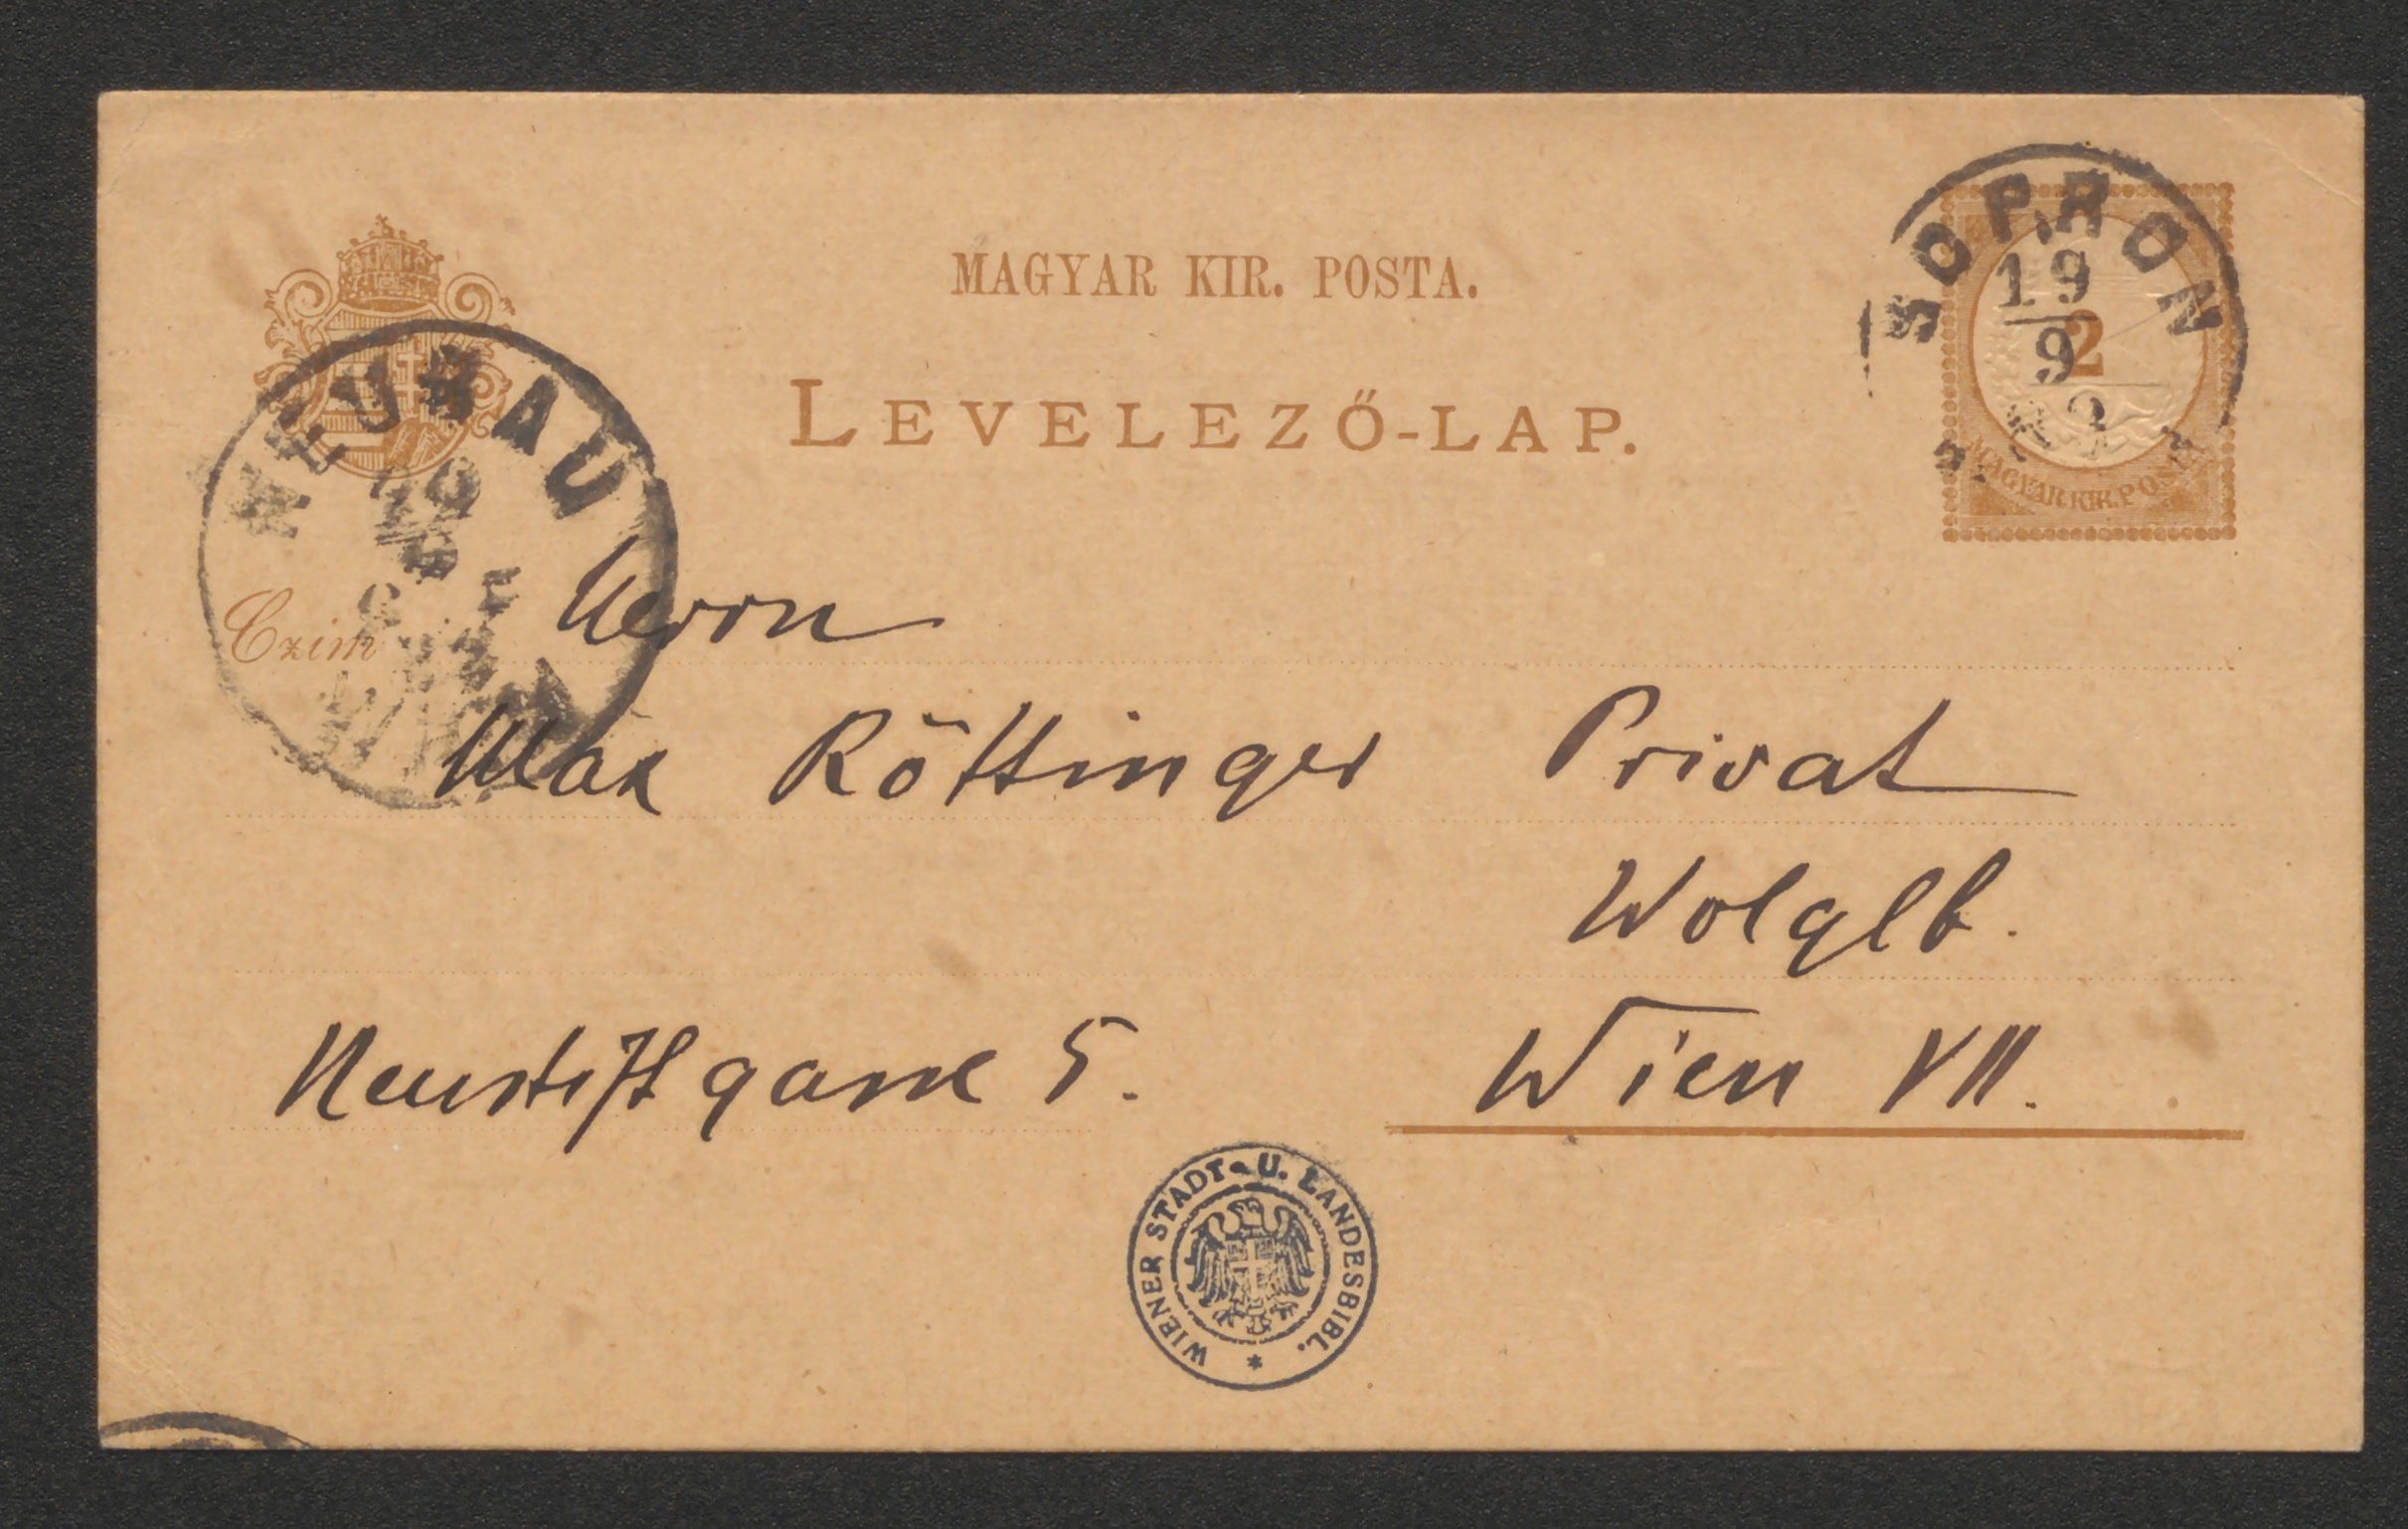 MAGYAR KIR. POSTA.
LEVELEZŐ-LAP.
SOPRON
19
9
2
MAGYAR KIR. POSTA
NEUBAU
20
9
Czim
Herrn
Max Röttinger Privat
Wolglb.
Neustiftgasse 5. Wien VII.
WIENER STADT- U. LANDESBIBL.